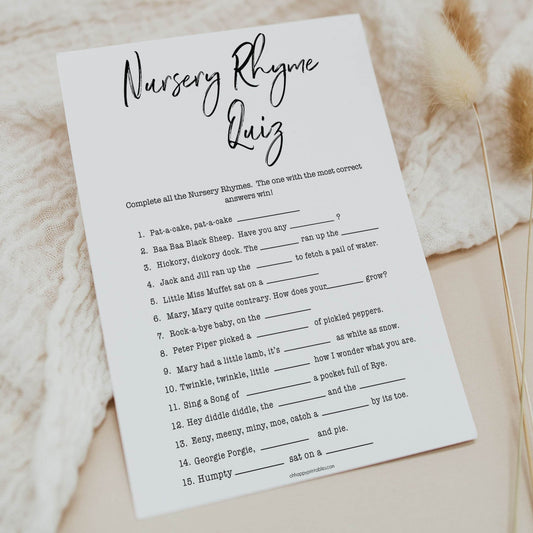 Nursery Rhyme
Quiz
Complete all the Nursery Rhymes. The one with the most correct
answers win!
1. Pat-a-cake, pat-a-cake ____________
2. Baa Baa Black Sheep. Have you any ________ ?
3. Hickory, dickory dock. The ________ ran up the ________
4. Jack and Jill ran up the ________ to fetch a pail of water.
5. Little Miss Muffet sat on a ____________
6. Mary, Mary quite contrary. How does your ________ grow?
7. Rock-a-bye baby, on the ____________
8. Peter Piper picked a ____________ of pickled peppers.
9. Mary had a little lamb, it's ____________ as white as snow.
10. Twinkle, twinkle, little ________ how I wonder what you are.
11. Sing a Song of ____________ a pocket full of Rye.
12. Hey diddle diddle, the ________ and the ________
13. Eeny, meeny, miny, moe, catch a ____________ by its toe.
14. Georgie Porgie, ____________ and pie.
15. Humpty ____________ sat on a ____________
ohhappyprintables.com